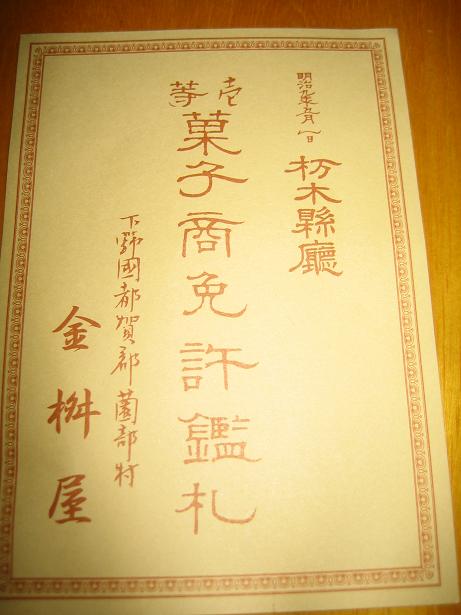 明治九年五月八日
栃木縣廳
壱等
菓子商免許鑑札
下野國都賀郡薗部村
金桝屋